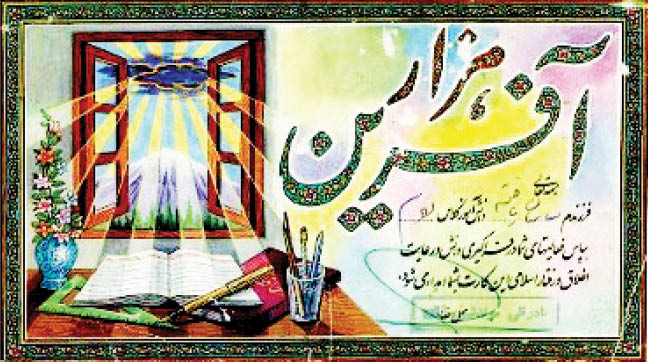 هزار
آفرین
فرزندم دانش آموز کلاس
بپاس فعالیتهای شما در فراگیری دانش و رعایت
اخلاق و رفتار اسلامی این کارت بشما اهدا می شود.